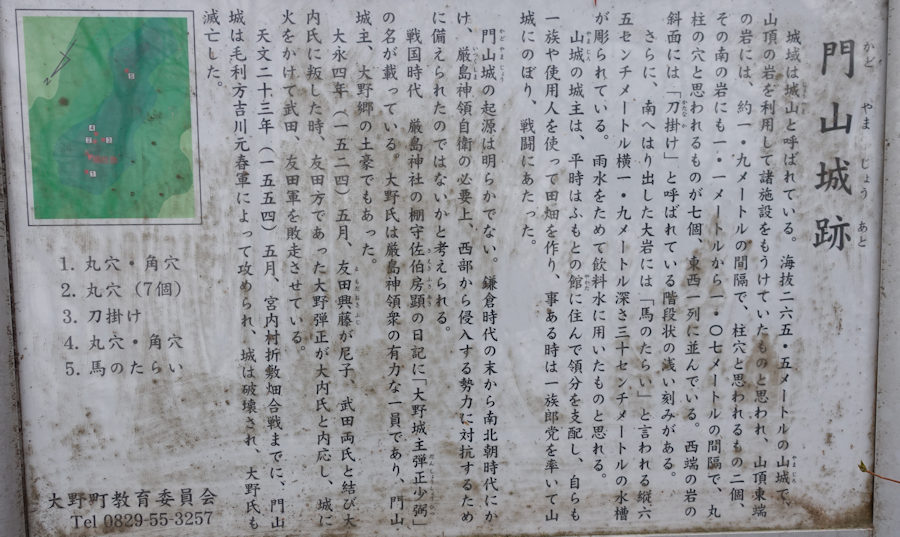 門山城跡
かど やま じょう あと
城域は城山と呼ばれている。海抜二六五・五メートルの山城で、
山頂の岩を利用して諸施設をもうけていたものと思われ、山頂東端
の岩には、約一・九メートルの間隔で、柱穴と思われるもの二個、
その南の岩にも一・一メートルから一・〇七メートルの間隔で、丸
柱の穴と思われるものが七個、東西一列に並んでいる。西端の岩の
斜面には「刀掛け」と呼ばれている階段状の浅い刻みがある。
さらに、南へはり出した大岩には「馬のたらい」と言われる縦六
五センチメートル横一・九メートル深さ三十センチメートルの水槽
が彫られている。雨水をためて飲料水に用いたものと思れる。
山城の城主は、平時はふもとの館に住んで領分を支配し、自らも
一族や使用人を使って田畑を作り、事ある時は一族郎党を率いて山
城にのぼり、戦闘にあたった。
門山城の起源は明らかでない。鎌倉時代の末から南北朝時代にか
け、厳島神領自衛の必要上、西部から侵入する勢力に対抗するため
に備えられたのではないかと考えられる。
戦国時代 厳島神社の棚守佐伯房顕の日記に「大野城主弾正少弼」
の名が載っている。大野氏は厳島神領衆の有力な一員であり、門山
城主、大野郷の土豪でもあった。
大永四年（一五二四）五月、友田興藤が尼子、武田両氏と結び大
内氏に叛した時、友田方であった大野弾正が大内氏と内応し、城に
火をかけて武田、友田軍を敗走させている。
天文二十三年（一五五四）五月、宮内村折敷畑合戦までに、門山
城は毛利方吉川元春軍によって攻められ、城は破壊され、大野氏も
滅亡した。
5
4
2
3
1
1. 丸穴・角穴
2. 丸穴（7個）
3. 刀掛け
4. 丸穴・角穴
5. 馬のたらい
大野町教育委員会
Tel 0829-55-3257